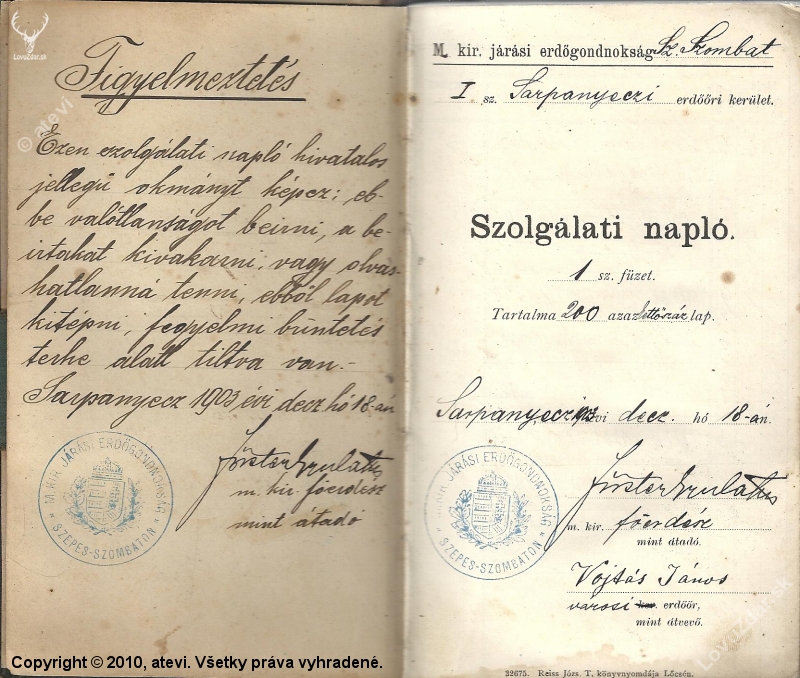 LovuZdar.sk
© atevi
Figyelmeztetés
Ezen szolgálati napló hivatalos
jellegü okmányt képez; eb-
be valótlanságot beirni, a be-
irtakat kivakarni, vagy olvas-
hatlanná tenni, ebből lapot
kitépni, fegyelmi büntetés
terhe alatt tiltva van.-
Sarpanyecz 1903 évi decz hó 18-án
M. KIR. JÁRÁSI ERDŐGONDNOKSÁG
* SZEPES-SZOMBATON *
Förster Gyula
m. kir főerdész
mint átadó
M. kir. járási erdőgondnokság Sz. Szombat
I sz. Sarpanyeczi erdőőri kerület.
Szolgálati napló.
1 sz. füzet.
Tartalma 200 azaz kettőszáz lap.
Sarpanyecz 1903 évi decz. hó 18-án.
M. KIR. JÁRÁSI ERDŐGONDNOKSÁG
* SZEPES-SZOMBATON *
Förster Gyula
m. kir. főerdész
mint átadó.
Vojtás János
városi kir. erdőőr,
mint átvevő.
32675. Reiss Józs. T. könyvnyomdája Lőcsén.
LovuZdar.sk
Copyright © 2010, atevi. Všetky práva vyhradené.